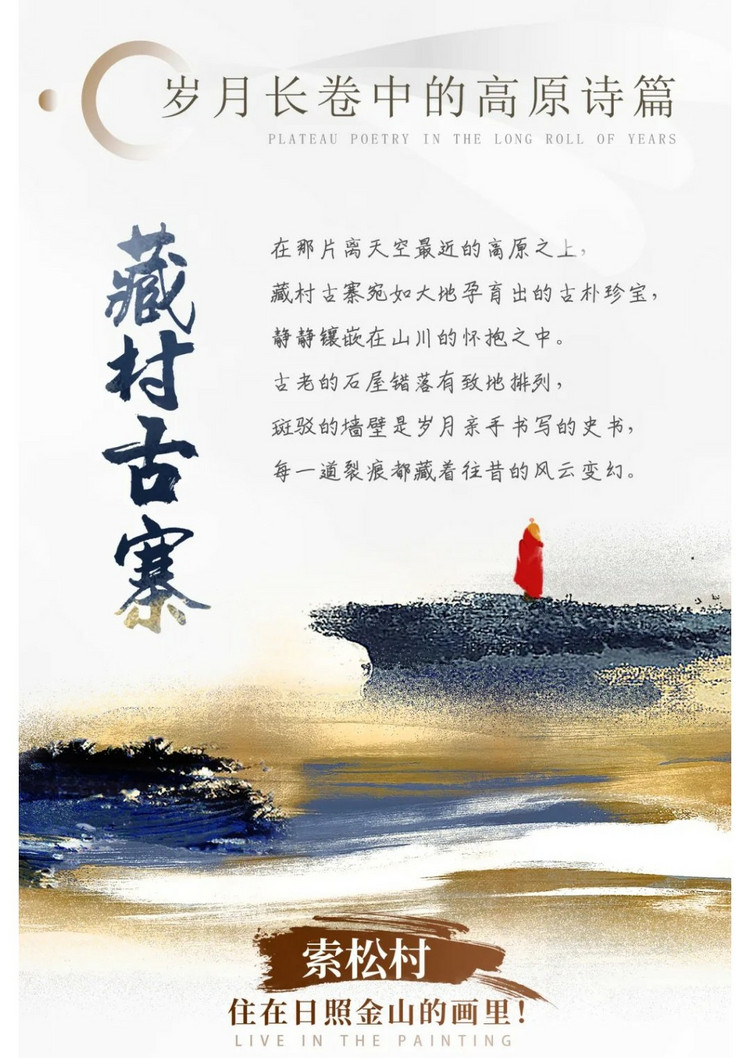 岁月长卷中的高原诗篇
PLATEAU POETRY IN THE LONG ROLL OF YEARS
藏村古寨
在那片离天空最近的高原之上,
藏村古寨宛如大地孕育出的古朴珍宝,
静静镶嵌在山川的怀抱之中。
古老的石屋错落有致地排列,
斑驳的墙壁是岁月亲手书写的史书,
每一道裂痕都藏着往昔的风云变幻。
索松村
住在日照金山的画里!
LIVE IN THE PAINTING